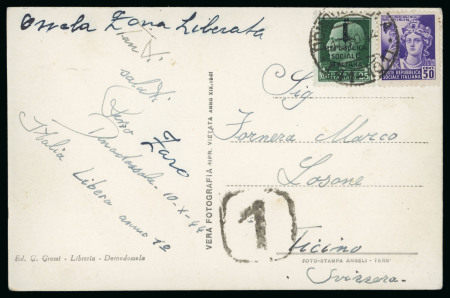 Ossola Zona Liberata
Tanti
saluti
Zaro
Domodossola 10-X-44
Italia Libera anno 1º
Ed. G. Grossi - Libreria - Domodossola
VERA FOTOGRAFIA - RIPR. VIETATA
REPUBBLICA
SOCIALE
ITALIANA
POSTE REPUBBLICA
SOCIALE ITALIANA
50
Sig
Fornera Marco
Losone
Ticino
FOTO-STAMPA ANGELI - TERNI
Svizzera
1